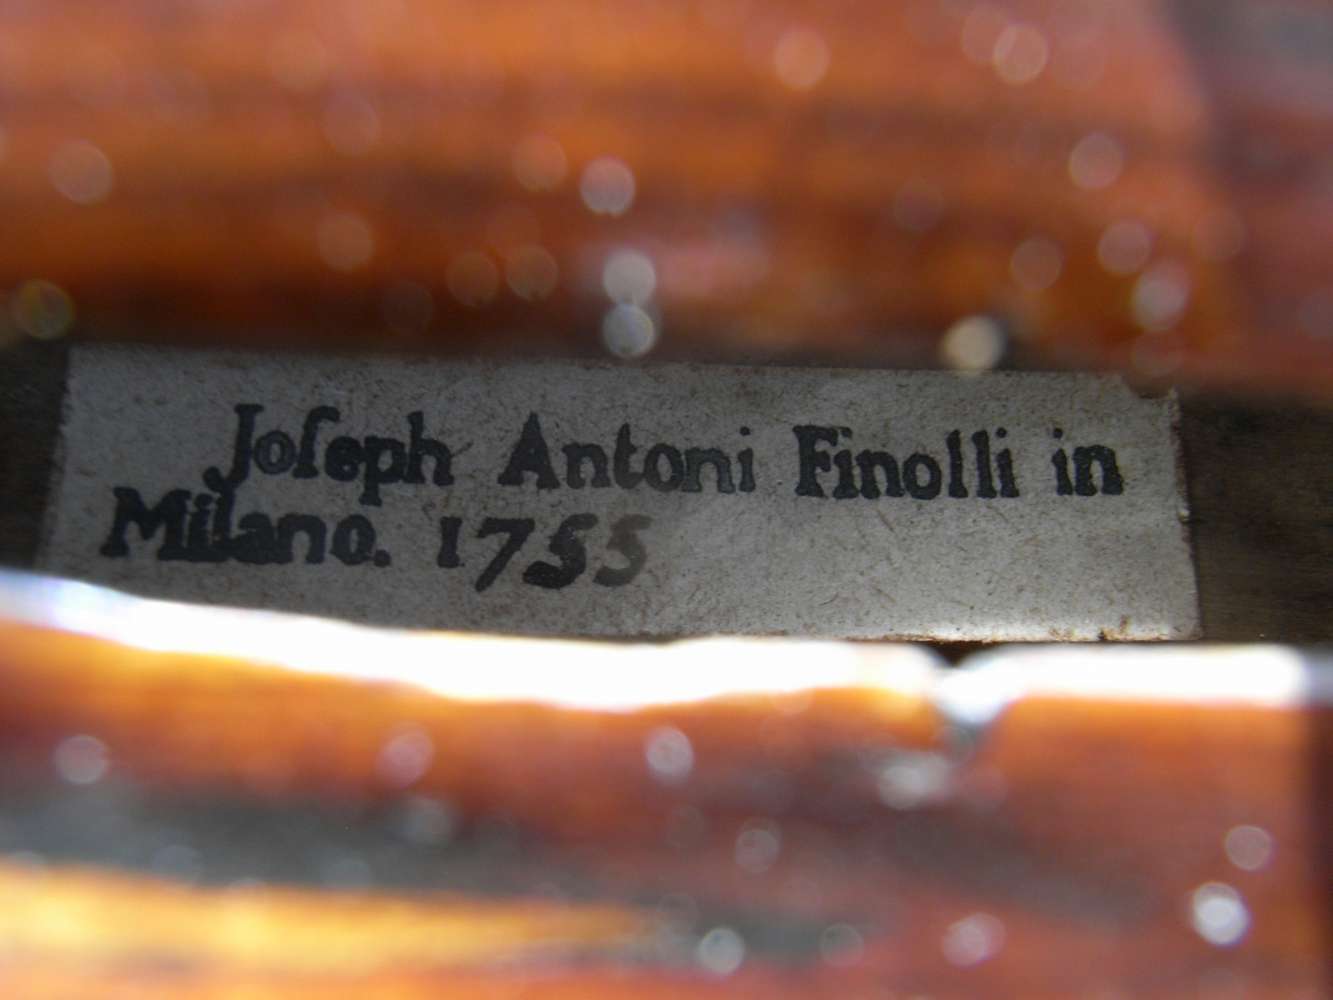 Joſeph Antoni Finolli in
Milano. 1755